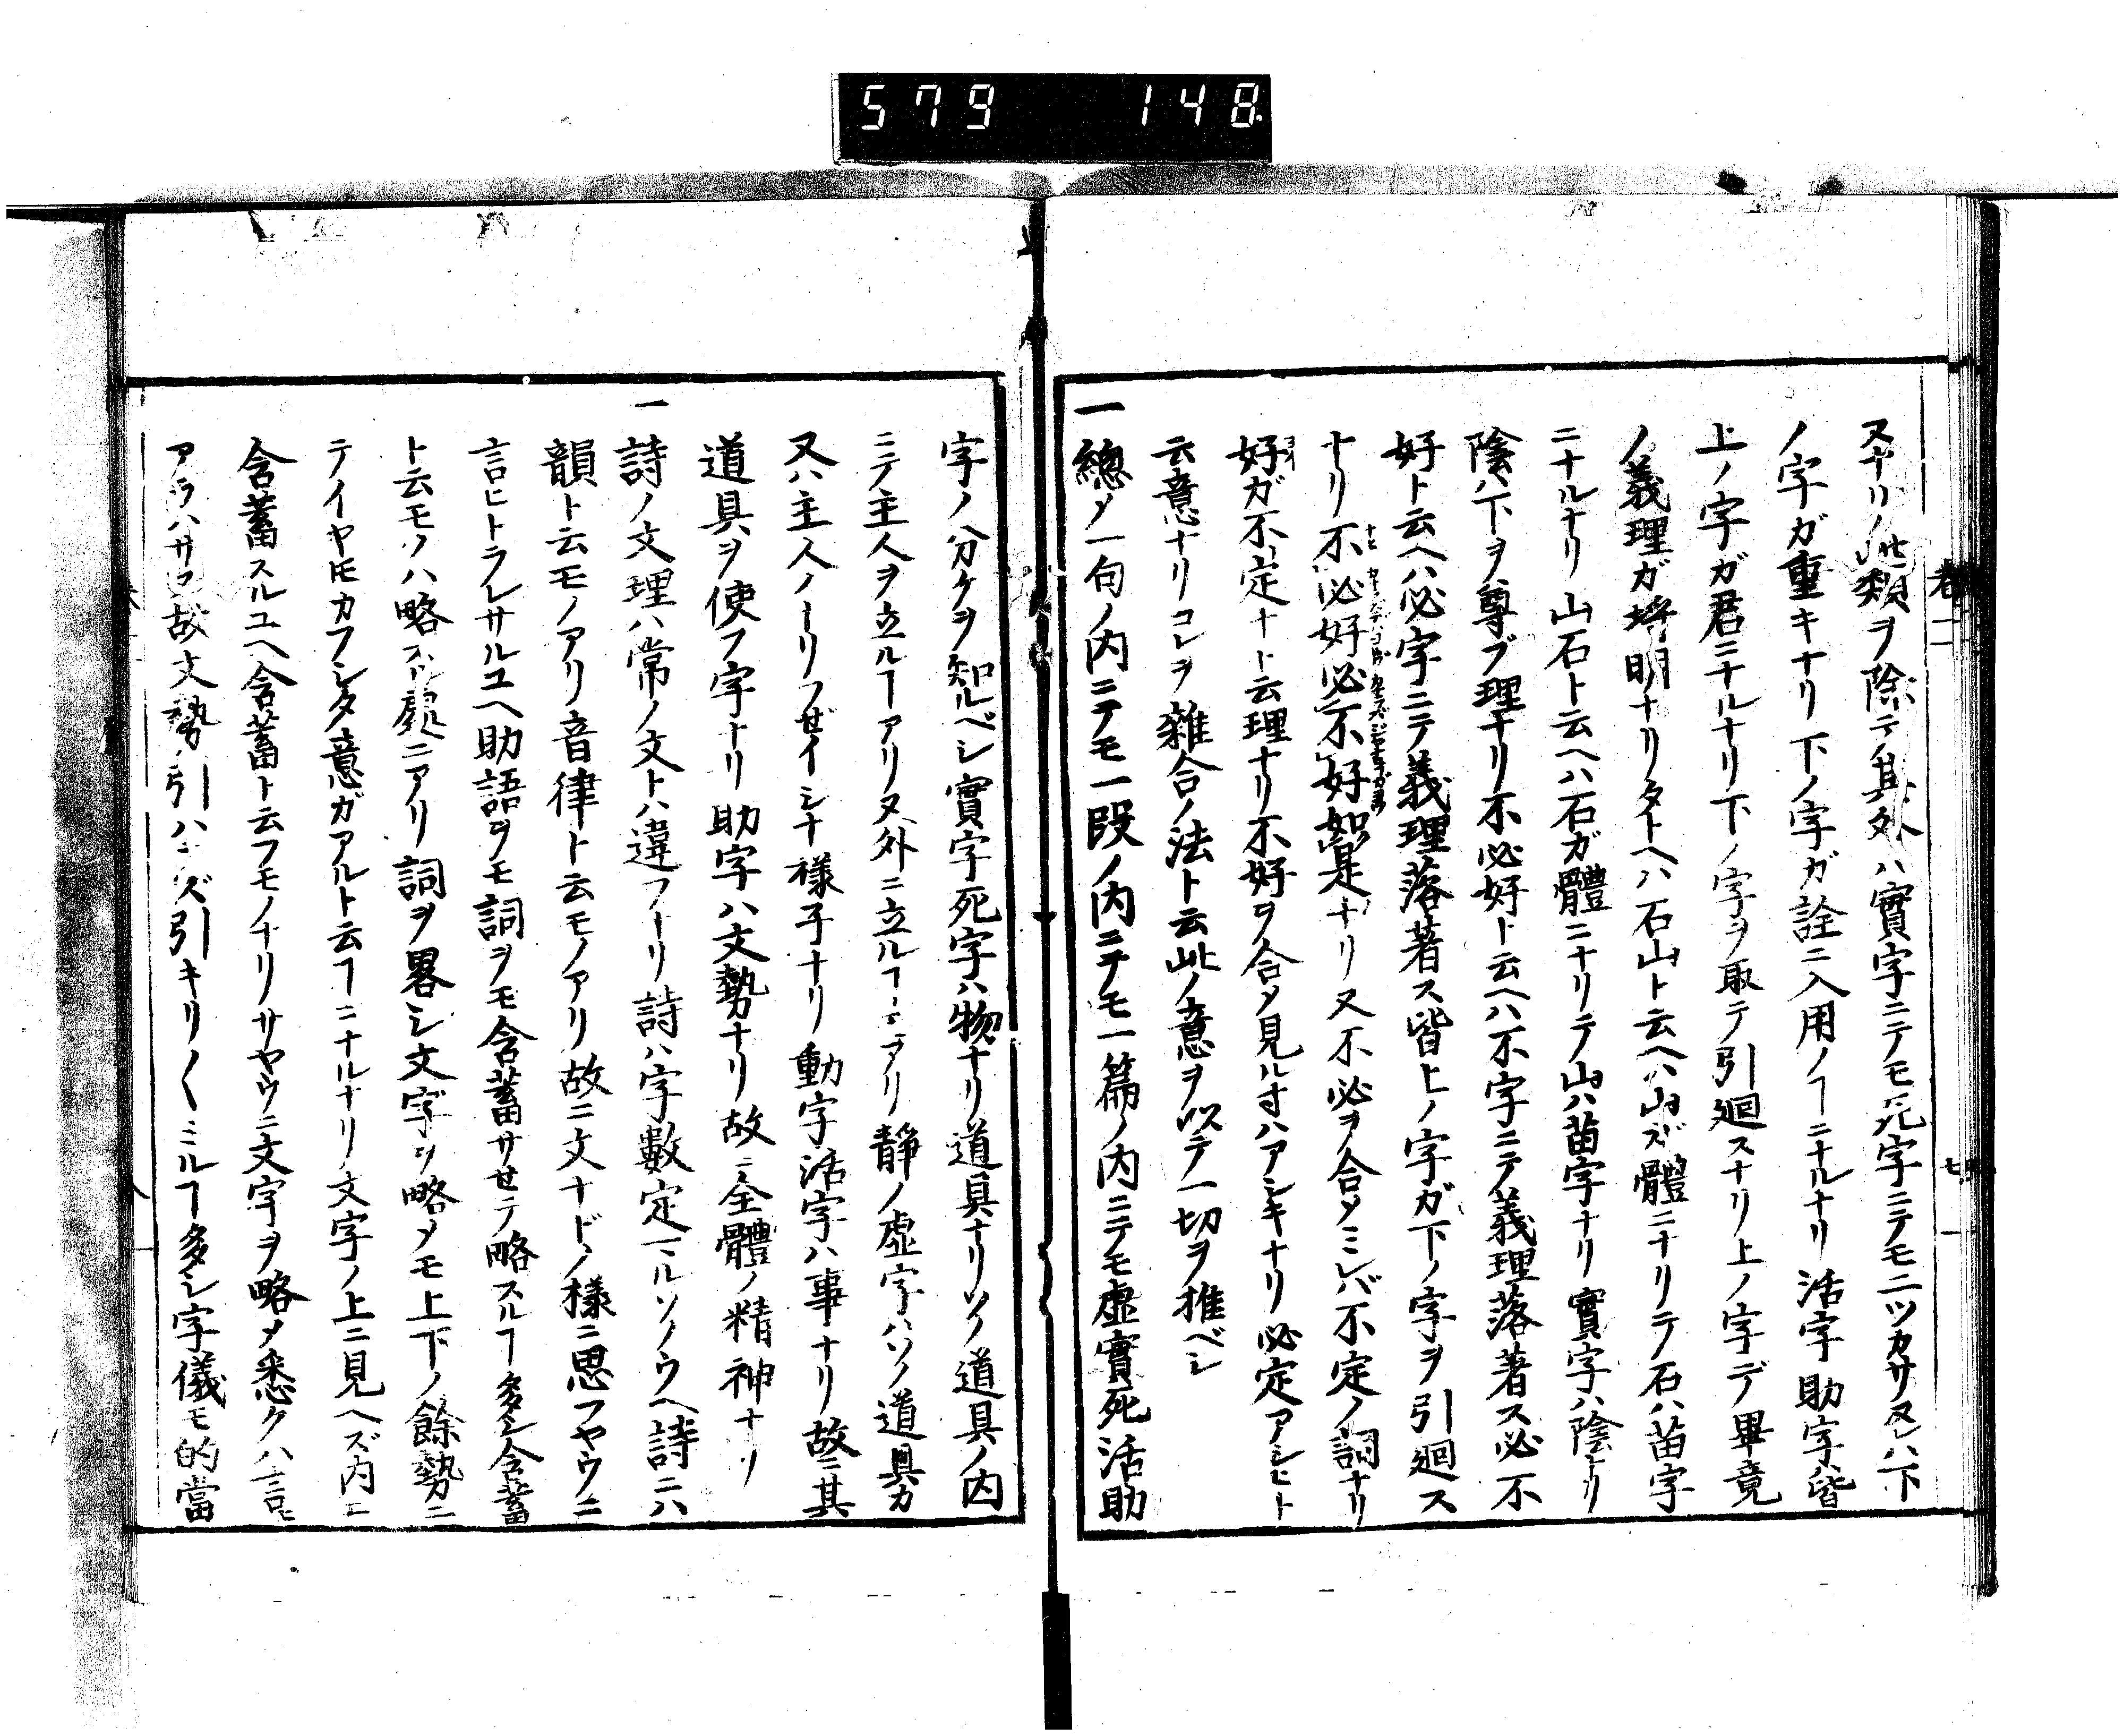 579 148
卷二 七
スナリ此類ヲ除テ其外ハ實字ニテモ死字ニテモ二ツカサヌレハ下
ノ字ガ重キナリ下ノ字ガ詮ニ入用ノヿニナルナリ活字助字皆
上ノ字ガ君ニナルナリ下ノ字ヲ取テ引廻スナリ上ノ字デ畢竟
ノ義理ガ埓明ナリタトヘハ石山ト云ヘハ山ガ體ニナリテ石ハ苗字
ニナルナリ山石ト云ヘハ石ガ體ニナリテ山ハ苗字ナリ實字ハ陰ナリ
陰ハ下ヲ尊ブ理ナリ不必好ト云ヘハ不字ニテ義理落著ス必不
好ト云ヘハ必字ニテ義理落著ス皆上ノ字ガ下ノ字ヲ引廻ス
ナリ不必好必不好如是ナリ又不必ヲ合タミレバ不定ノ詞ナリ
好ガ不定ナト云理ナリ不好ヲ合メ見ル寸ハアシキナリ必定アシヒト
云意ナリコレヲ雜合ノ法ト云此ノ意ヲ以テ一切ヲ推ベシ
一總メ一句ノ内ニテモ一段ノ内ニテモ一篇ノ内ニテモ虚實死活助
字ノ分ケヲ知ルベシ實字死字ハ物ナリ道具ナリソノ道具ノ内
ニテ主人ヲ立ルヿアリ又外ニ立ルヿモアリ靜ノ虚字ハソノ道具カ
又ハ主人ノナリフゼイシナ樣子ナリ動字活字ハ事ナリ故ニ其
道具ヲ使フ字ナリ助字ハ文勢ナリ故ニ全體ノ精神ナリ
一詩ノ文理ハ常ノ文トハ違フナリ詩ハ字數定マルソノウヘ詩ニハ
韻ト云モノアリ音律ト云モノアリ故ニ文ナドノ樣ニ思フヤウニ
言ヒトラレサルユヘ助語ヲモ詞ヲモ含蓄サセテ略スルヿ多シ含蓄
ト云モノハ略スル處ニアリ詞ヲ畧シ文字ヲ略メモ上下ノ餘勢ニ
テイヤトモカフシタ意ガアルト云ヿニナルナリ文字ノ上ニ見ヘズ内ニ
含蓄スルユヘ含蓄ト云フモノナリサヤウニ文字ヲ略メ悉クハ言ヒ
アラハサヌ故文勢ノ引ハラズ引キリ〳〵ミルヿ多シ字儀モ的當